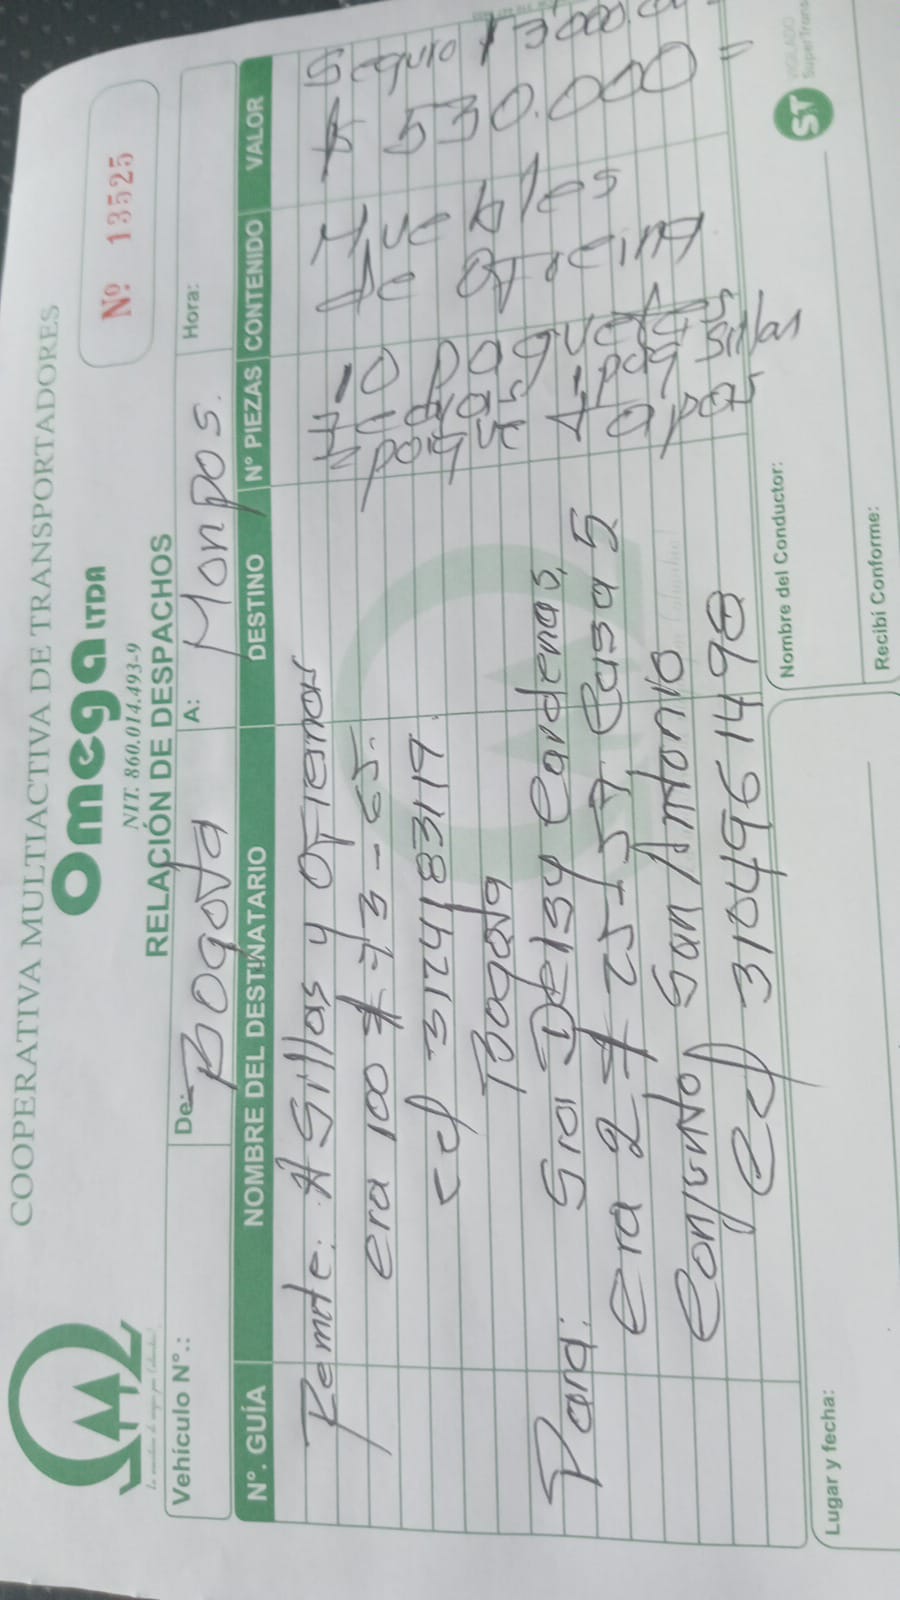 COOPERATIVA MULTIACTIVA DE TRANSPORTADORES
Omega LTDA
NIT. 860.014.493-9
RELACIÓN DE DESPACHOS
Nº 13525
Vehículo Nº.:
De: Bogota
A: Monpos.
Hora:
Nº. GUÍA
NOMBRE DEL DESTINATARIO
DESTINO
Nº PIEZAS
CONTENIDO
VALOR
Remite: A Sillas y Oficinas
cra 100 # 73-65.
cel 3124183119.
Bogota
Para: Sra Deisy Cardenas,
cra 2 # 25-57 Casa 5
Conjunto San Antonio
cel 3104961498
10 paquetes
sillas
paque tapas
Muebles
de Oficina
Seguro
$ 530.000=
VIGILADO
SuperTrans
ST
Lugar y fecha:
Nombre del Conductor:
Recibí Conforme: